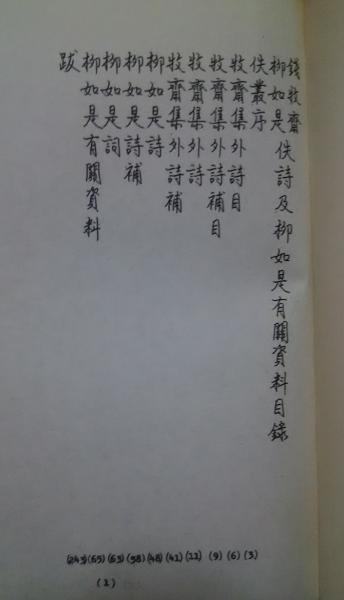 錢牧齋
柳如是佚詩及柳如是有關資料目錄
佚叢序 (3)
牧齋集外詩目 (6)
牧齋集外詩補目 (9)
牧齋集外詩 (11)
牧齋集外詩補 (41)
柳如是詩 (48)
柳如是詩補 (58)
柳如是詞 (63)
柳如是有關資料 (65)
跋 (243)
(1)